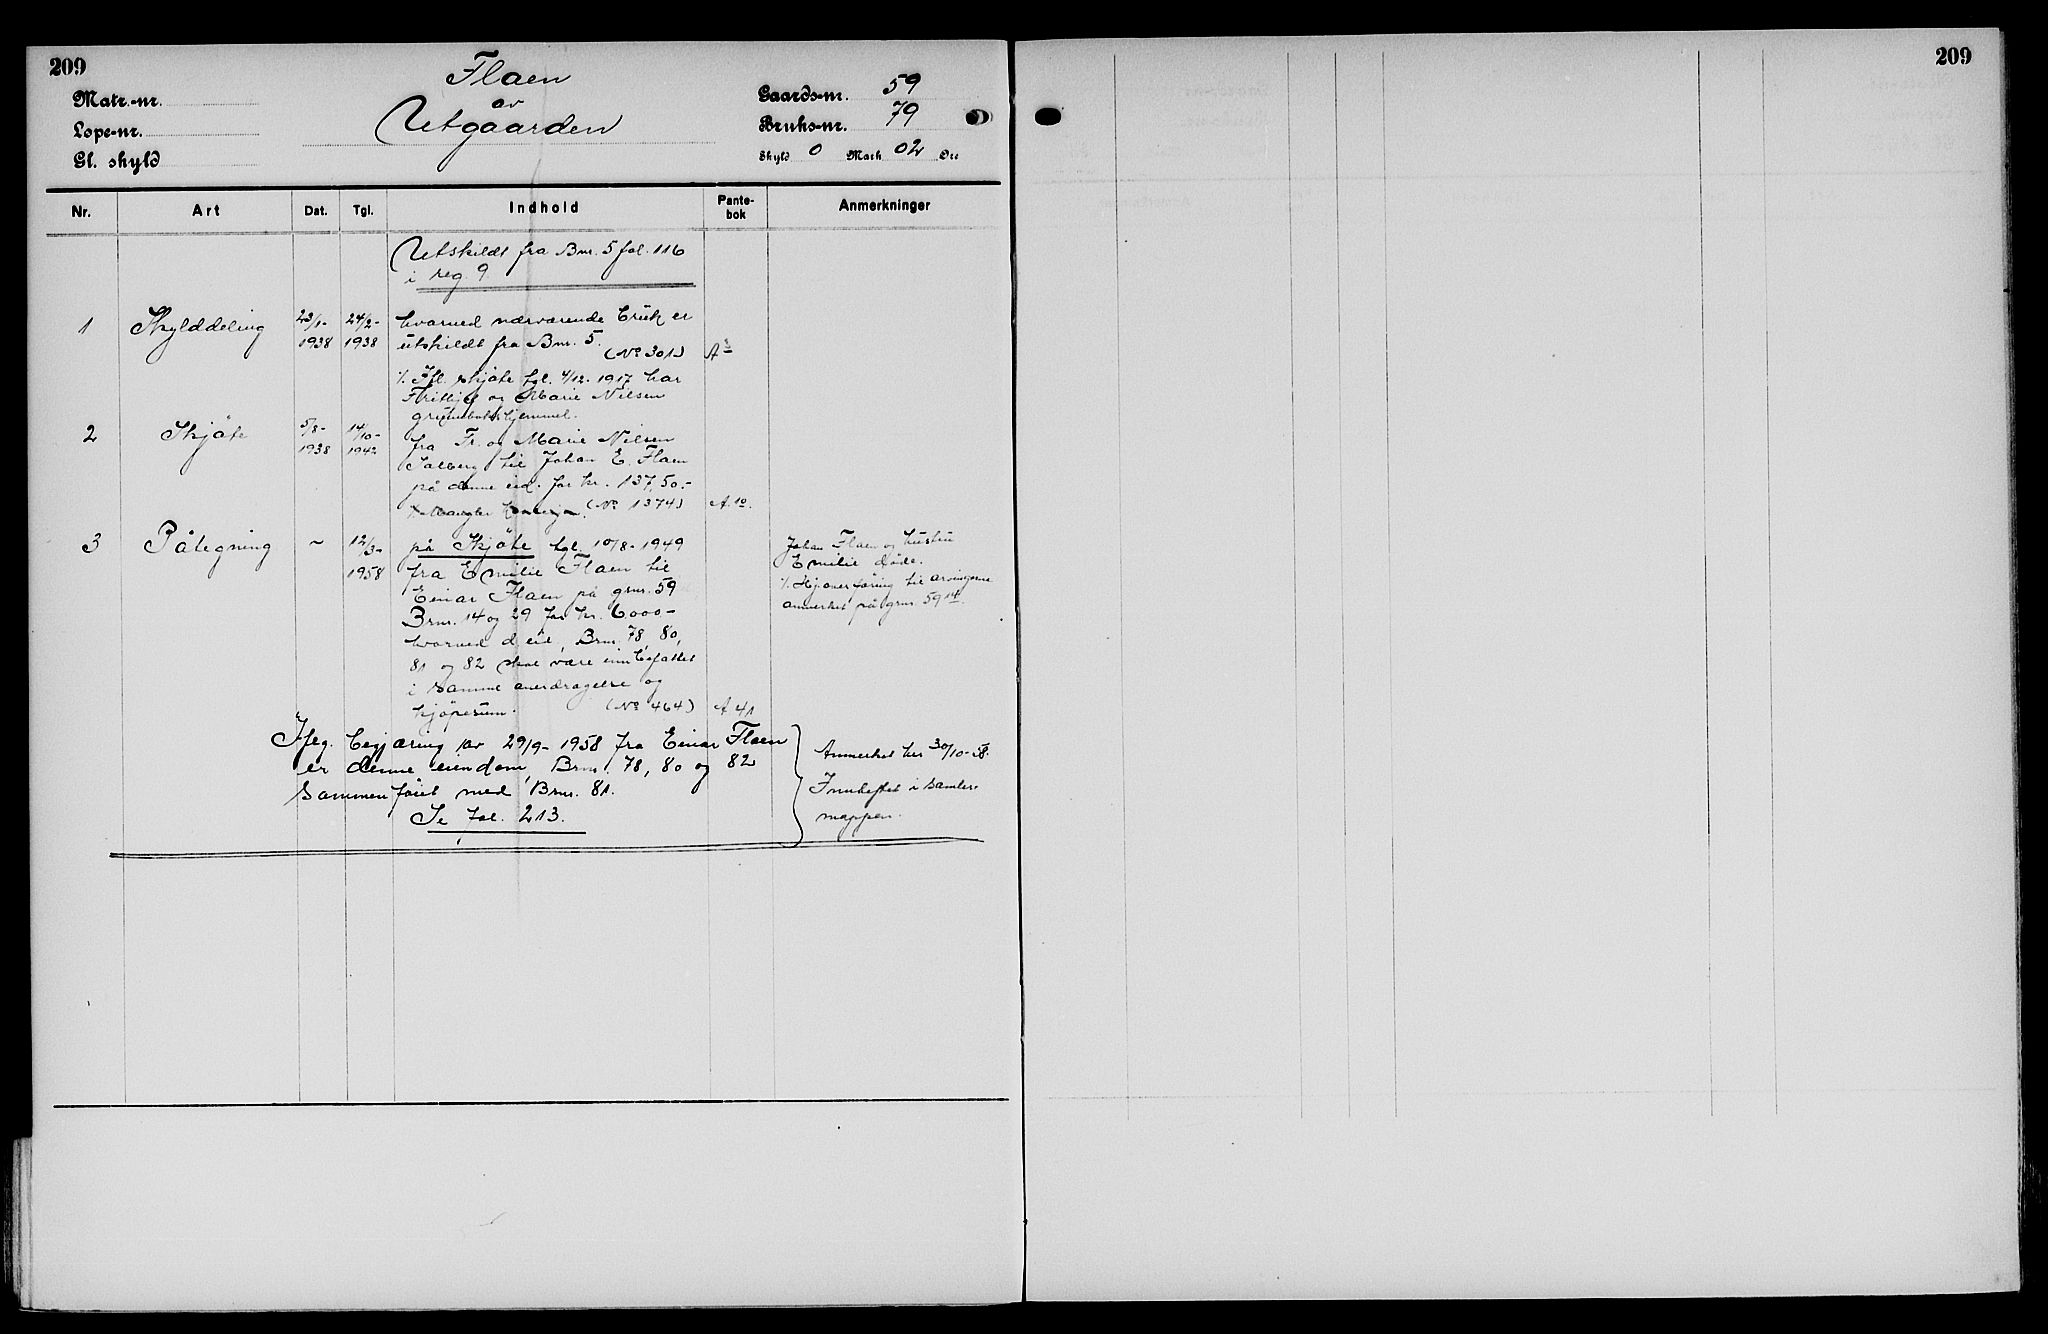 209
Flaen
av
Utgaarden
Matr.-nr.
Løpe-nr.
Gl. skyld
Gaards-nr. 59
Bruks-nr. 79
Skyld 0 Mark 02 Øre
Nr. Art Dat. Tgl. Indhold Pante-bok Anmerkninger
Utskildt fra Bnr. 5 fol. 116
i reg. 9.
1 Skylddeling 23/1- 1938 24/2- 1938 hvorved nærværende bruk er
utskildt fra Bnr. 5.
(No 301) A 3
./. Ifl. skjøte tgl. 4/12-1917 har
Frithjof og Marie Nilsen
grunnbokshjemmel.
2 Skjøte 5/8- 1938 14/10- 1942 fra Fr. og Marie Nilsen
Solberg til Johan E. Flaen
på denne eid. for kr. 137,50.-
(No 1374) A. 10.
3 Påtegning ~ 12/3- 1958 på Skjøte tgl. 10/8-1949
fra Emilie Flaen til
Einar Flaen på gnr. 59
Brnr. 14 og 29 for kr. 6000-
hvorved d. eid., Brnr. 78, 80,
81 og 82 skal være innbefattet
i samme overdragelse og
kjøpesum. (No 464) A 41
Johan Flaen og hustru
Emilie døde.
./. Hj.overføring til arvingerne
anmerket på gnr. 59 14.
Ifлg. begjæring av 29/9-1958 fra Einar Flaen
er denne eiendom, Brnr. 78, 80 og 82
sammenføiet med Brnr. 81.
Se fol. 213.
Anmerket her 30/10-58.
Innheftet i samlemappen.
209